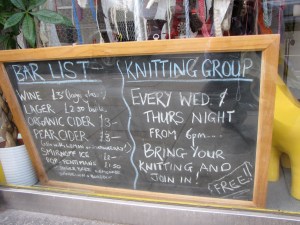 BAR LIST
WINE £3
LAGER £2.50
ORGANIC CIDER £3—
PEAR CIDER £3—
SMIRNOFF ICE
KNITTING GROUP
EVERY WED &
THURS NIGHT
FROM 6pm
BRING YOUR
KNITTING AND
JOIN IN!
FREE!!